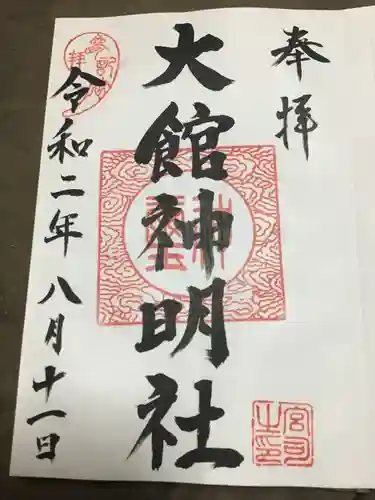 奉拝
大館神明社
令和二年八月十一日
宮司之印